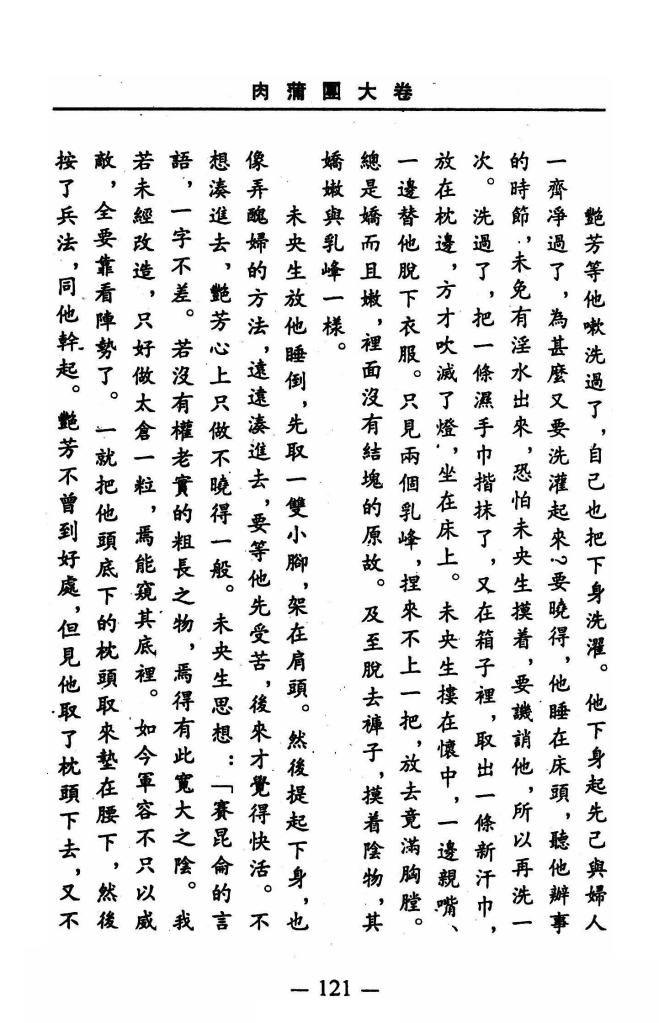 肉蒲團大卷
艷芳等他嗽洗過了，自己也把下身洗濯。他下身起先己與婦人
一齊凈過了，為甚麼又要洗灌起來？要曉得，他睡在床頭，聽他辦事
的時節，未免有淫水出來，恐怕未央生摸着，要譏誚他，所以再洗一
次。洗過了，把一條濕手巾揩抹了，又在箱子裡，取出一條新汗巾，
放在枕邊，方才吹滅了燈，坐在床上。未央生摟在懷中，一邊親嘴、
一邊替他脫下衣服。只見兩個乳峰，捏來不上一把，放去竟滿胸膛。
總是嬌而且嫩，裡面沒有結塊的原故。及至脫去褲子，摸着陰物，其
嬌嫩與乳峰一樣。
未央生放他睡倒，先取一雙小腳，架在肩頭。然後提起下身，也
像弄醜婦的方法，遠遠湊進去，要等他先受苦，後來才覺得快活。不
想湊進去，艷芳心上只做不曉得一般。未央生思想：「賽昆侖的言
語，一字不差。若沒有權老實的粗長之物，焉得有此寬大之陰。我
若未經改造，只好做太倉一粒，焉能窺其底裡。如今軍容不只以威
敵，全要靠看陣勢了。一就把他頭底下的枕頭取來墊在腰下，然後
按了兵法，同他幹起。艷芳不曾到好處，但見他取了枕頭下去，又不
— 121 —